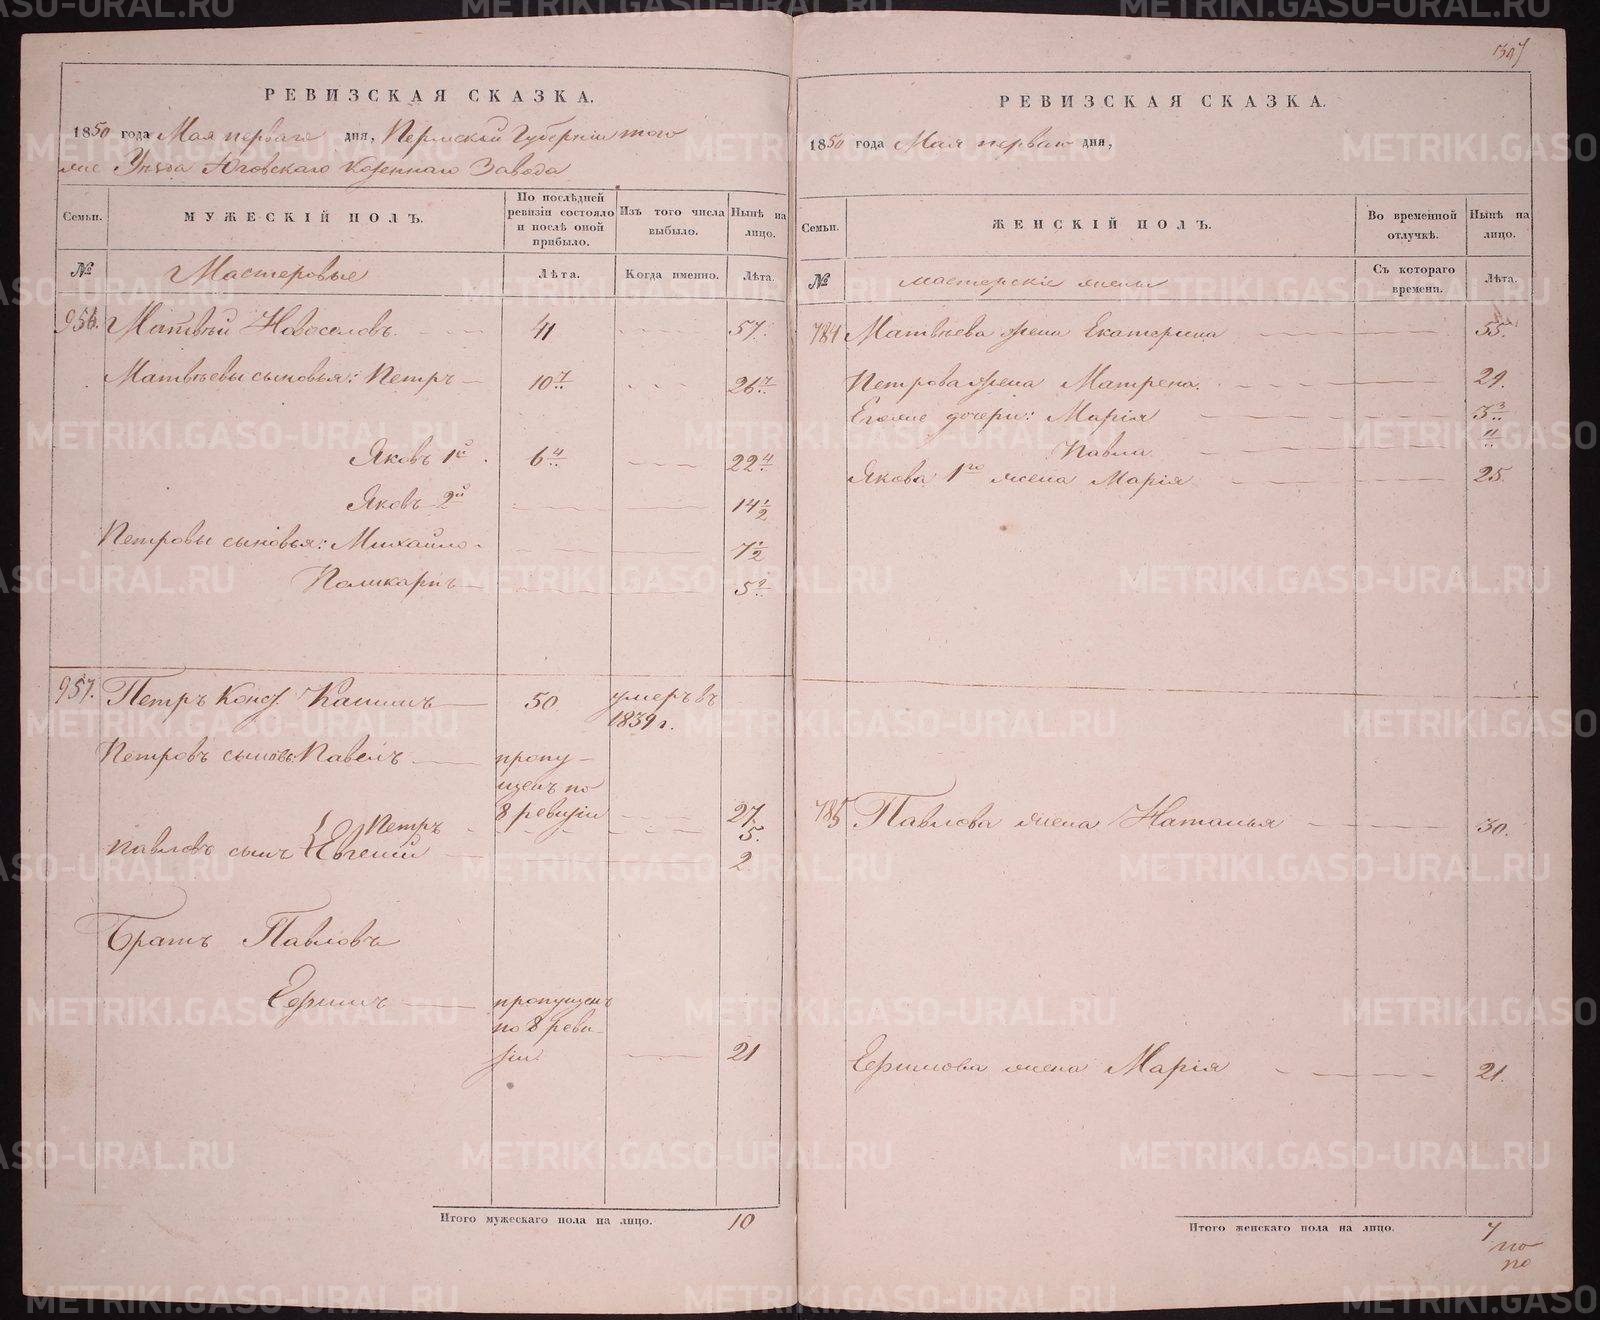 РЕВИЗСКАЯ СКАЗКА.
1850 года Мая перваго дня, Пермской Губерніи того
же Уѣзда Юговскаго Казеннаго Завода
Семьи.
МУЖЕСКІЙ ПОЛЪ.
По послѣдней ревизіи состояло и послѣ оной прибыло.
Изъ того числа выбыло.
Нынѣ на лицо.
№
Мастеровые
Лѣта.
Когда именно.
Лѣта.
956. Матвѣй Новоселовъ. 41 57.
Матвѣевы сыновья: Петръ 10 7/.. 26 7/..
Яковъ 1й 6 4/.. 22 4/..
Яковъ 2й 14 1/2
Петровы сыновья: Михайло 7 1/2
Поликарпъ 5
957. Петръ Канинъ 50 умеръ въ
1839 г.
Петровъ сынъ Павелъ пропу-
щенъ по
8 ревизіи 27.
Петръ 5.
Павловъ сынъ Евгеній 2
Братъ Павловъ
Ефимъ пропущенъ
по 8 реви-
зіи 21
Итого мужескаго пола на лицо. 10
347
РЕВИЗСКАЯ СКАЗКА.
1850 года Мая перваго дня,
Семьи.
ЖЕНСКІЙ ПОЛЪ.
Во временной отлучкѣ.
Нынѣ на лицо.
№
мастерскіе жены
Съ котораго времени.
Лѣта.
784 Матвѣева жена Екатерина 55.
Петрова жена Матрена. 29.
Егоже дочери: Марія 3 3/..
Павла 11/..
Якова 1го жена Марія 25.
785 Павлова жена Наталья 30.
Ефимова жена Марія 21.
Итого женскаго пола на лицо. 7
по
по
METRIKI.GASO-URAL.RU